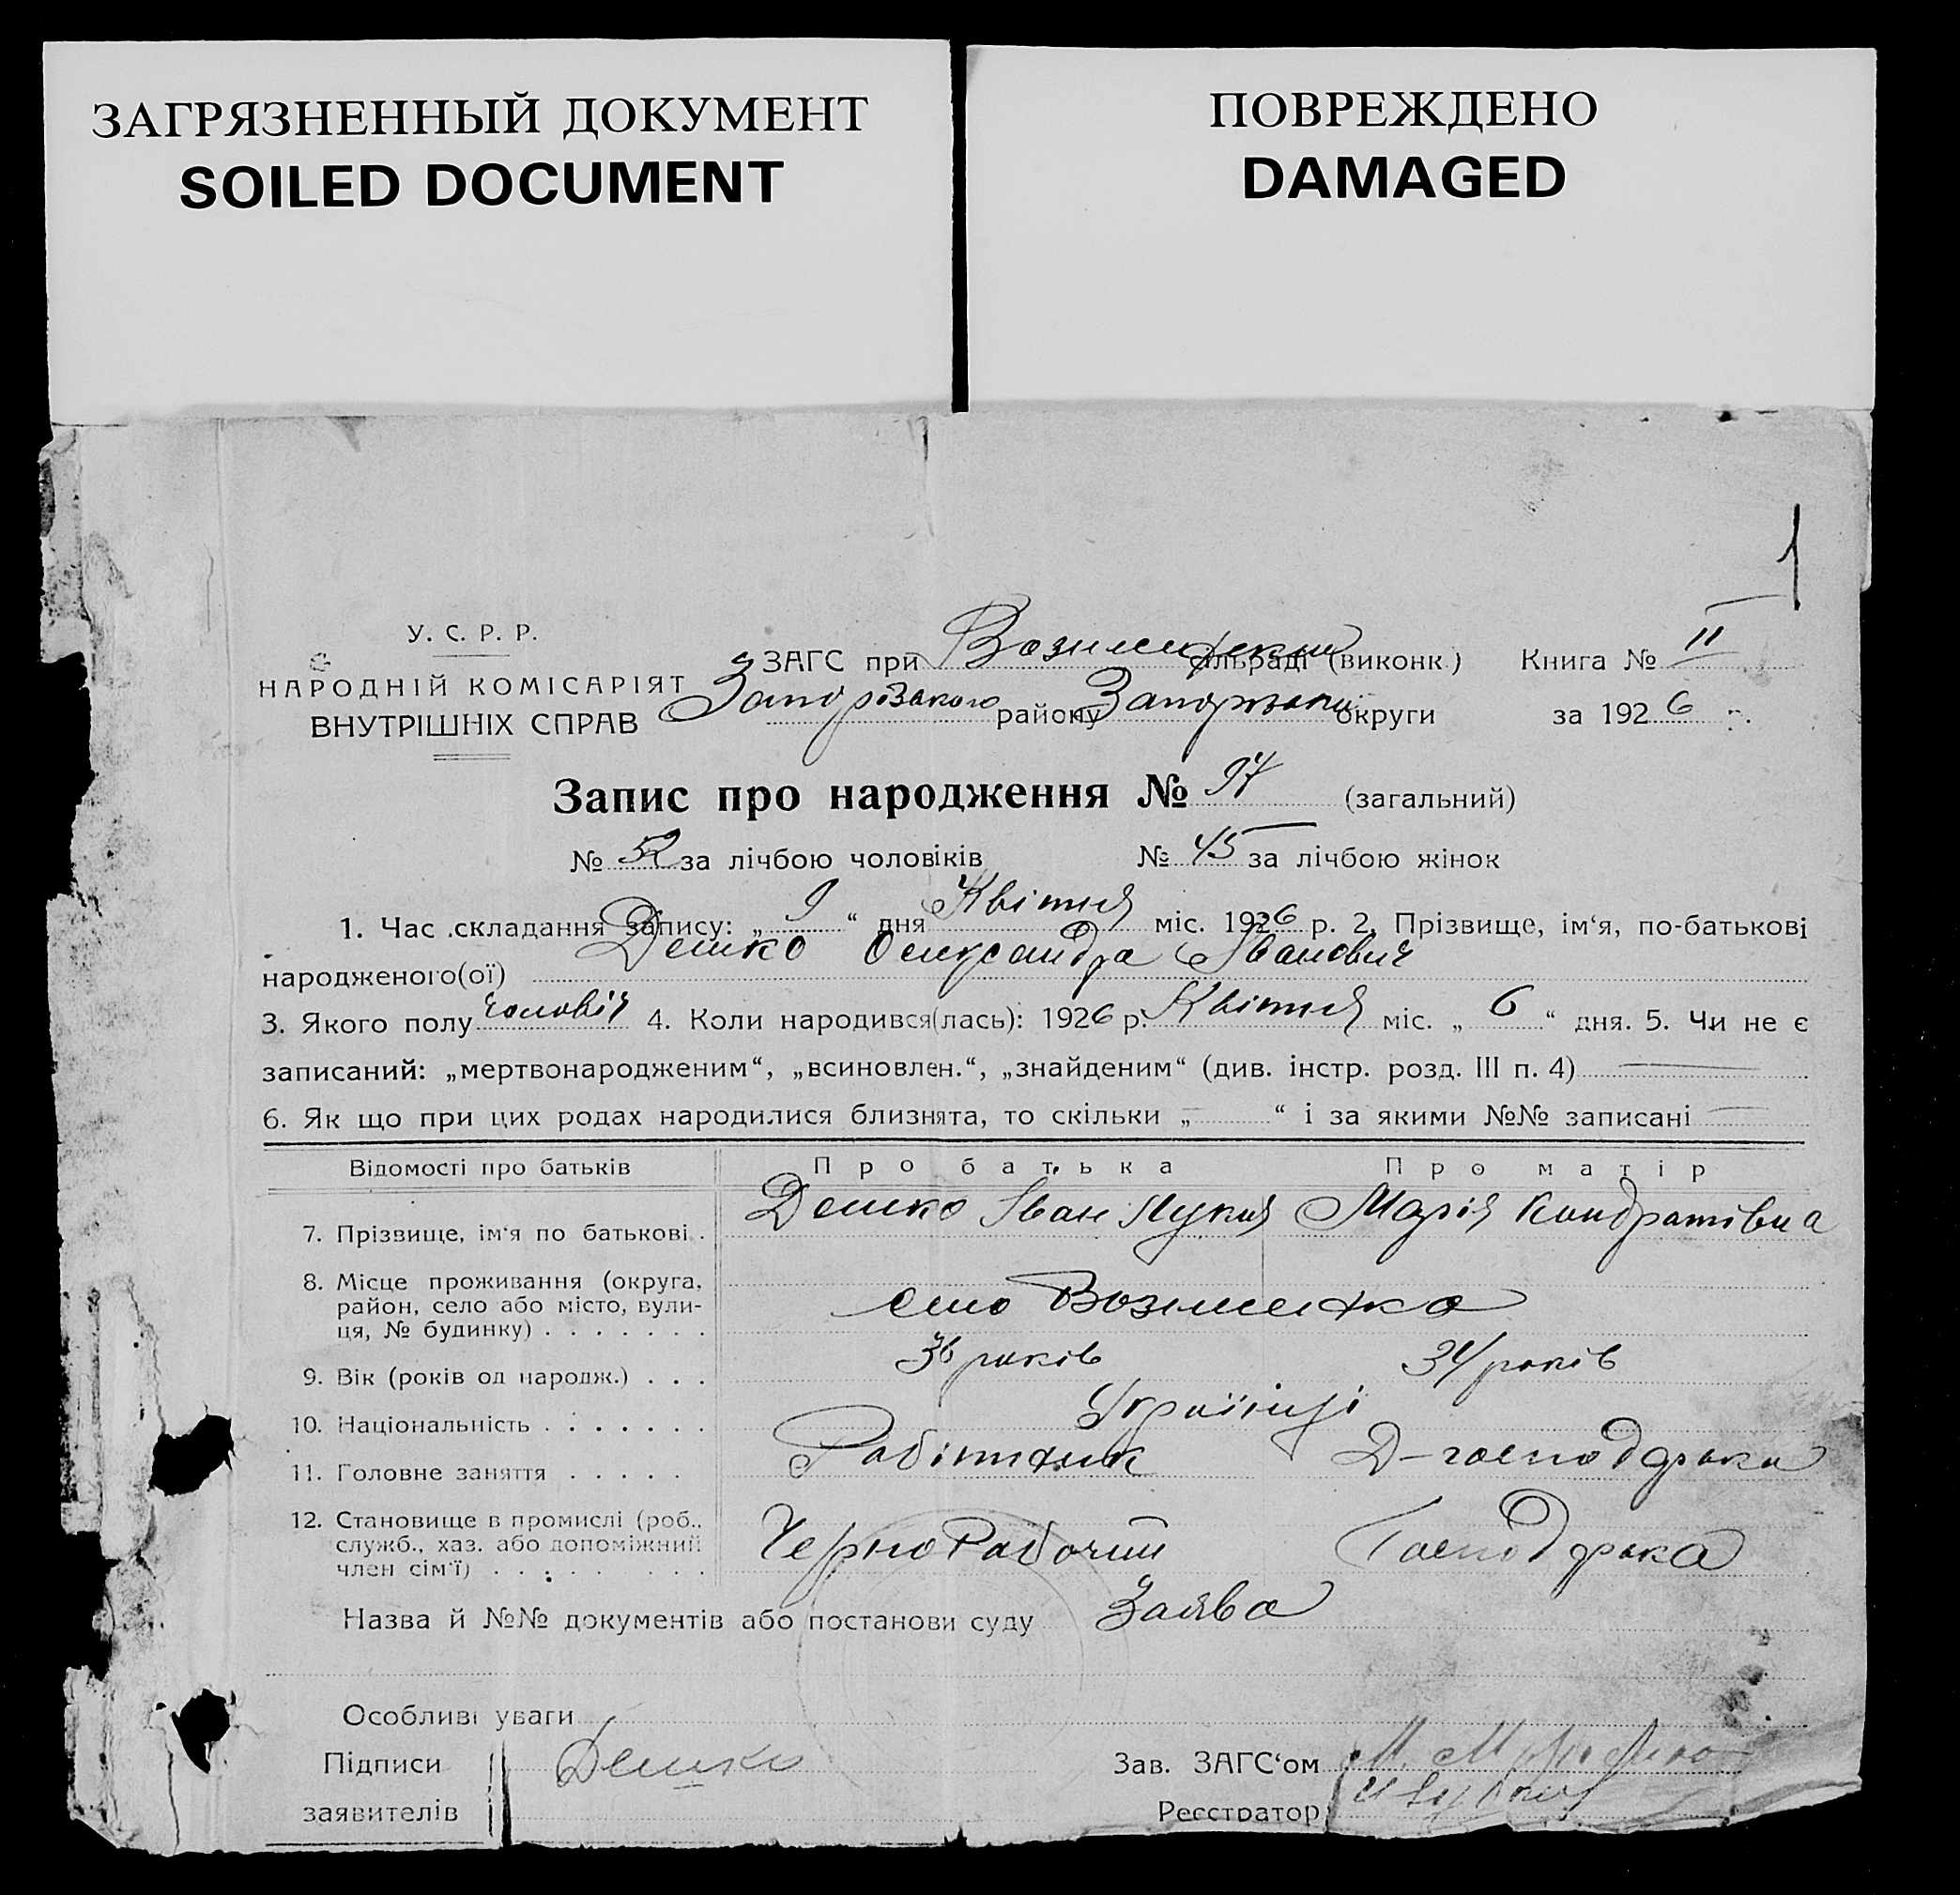 ЗАГРЯЗНЕННЫЙ ДОКУМЕНТ
SOILED DOCUMENT
ПОВРЕЖДЕНО
DAMAGED
1
У. С. Р. Р.
НАРОДНІЙ КОМІСАРІЯТ
ВНУТРІШНІХ СПРАВ
ЗАГС при сільраді (виконк.) Книга № II
Запорізького району Запорізької округи за 1926 р.
Запис про народження № 97 (загальний)
№ 52 за лічбою чоловіків № 45 за лічбою жінок
1. Час складання запису: „ 9 “ дня Квітня міс. 1926 р. 2. Прізвище, ім‘я, по-батькові
народженого(ої) Демко Олександра Іванович
3. Якого полу чоловіч 4. Коли народився(лась): 1926 р. Квітня міс. „ 6 “ дня. 5. Чи не є
записаний: „мертвонародженим“, „всиновлен.“, „знайденим“ (див. інстр. розд. III п. 4)
6. Як що при цих родах народилися близнята, то скільки „ “ і за якими №№ записані
Відомості про батьків Про батька Про матір
7. Прізвище, ім‘я по батькові . Демко Іван Лукич Марія Кондратівна
8. Місце проживання (округа,
район, село або місто, вули-
ця, № будинку) . . . . . . . село Вознесенка
9. Вік (років од народж.) . . . 36 років 34 років
10. Національність . . . . . . . Українці
11. Головне заняття . . . . . Робітник Д-господарка
12. Становище в промислі (роб.,
служб., хаз. або допоміжний
член сім‘ї) . . . . . . . . Чернорабочий Господарка
Назва й №№ документів або постанови суду Заява
Особливі уваги
Підписи Демко Зав. ЗАГС‘ом
заявителів Реєстратор